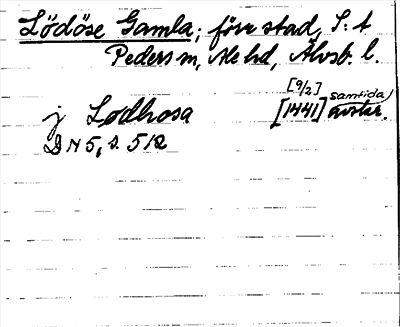 Lödöse Gamla; förr stad, S:t
Peders sn, Ale hd, Älvsb. l.
[9/2] samtida
j Lødhosa [1441] avskr.
DN 5, s. 512